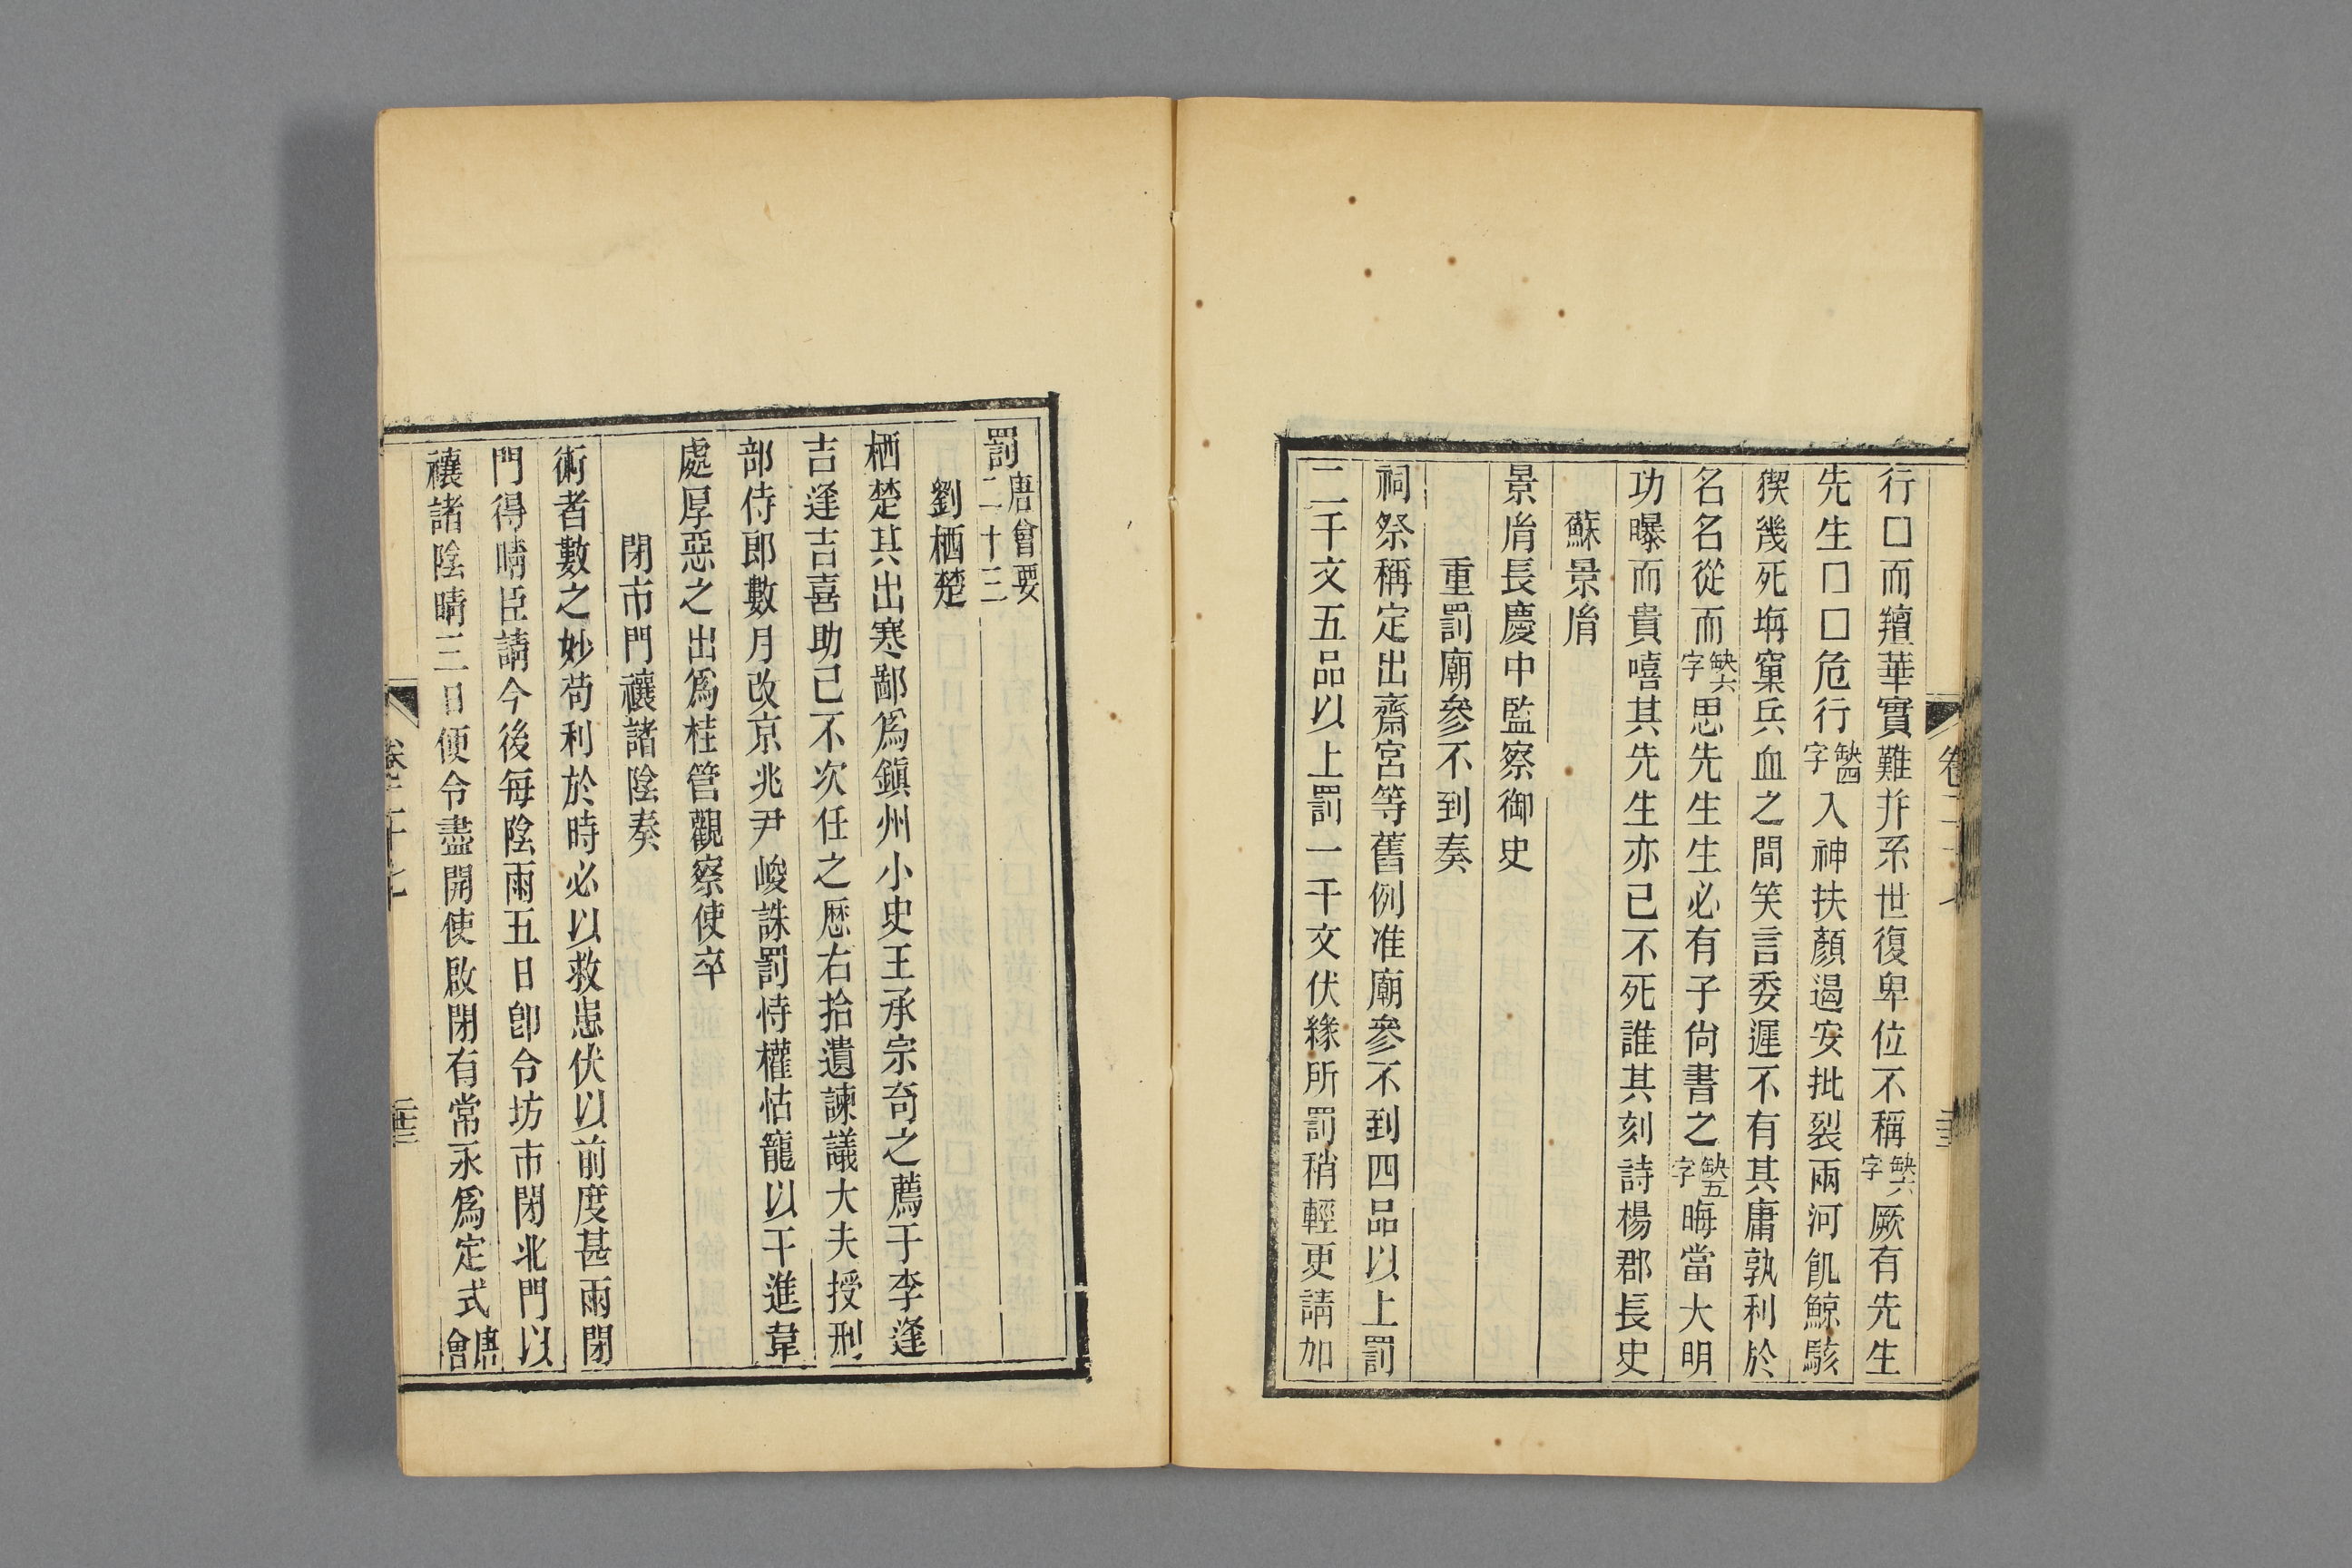 行□而羶華實難幷系世復卑位不稱缺六字厥有先生
先生□□危行缺四字入神扶顏遏安批裂兩河飢鯨駭
猰幾死坶窠兵血之間笑言委遲不有其庸孰利於
名名從而缺六字思先生生必有子尙書之缺五字晦當大明
功曝而貴嘻其先生亦已不死誰其刻詩楊郡長史
蘇景胤
景胤長慶中監察御史
重罰廟參不到奏
祠祭稱定出齋宮等舊例准廟參不到四品以上罰
二千文五品以上罰一千文伏緣所罰稍輕更請加
罰唐會要二十三
劉栖楚
栖楚其出寒鄙爲鎭州小史王承宗奇之薦于李逢
吉逢吉喜助己不次任之歷右拾遺諫議大夫授刑
部侍郎數月改京兆尹峻誅罰恃權怙寵以干進韋
處厚惡之出爲桂管觀察使卒
閉市門禳諸陰奏
術者數之妙苟利於時必以救患伏以前度甚雨閉
門得晴臣請今後每陰雨五日卽令坊市閉北門以
禳諸陰晴三日便令盡開使啟閉有常永爲定式唐會
卷二十七